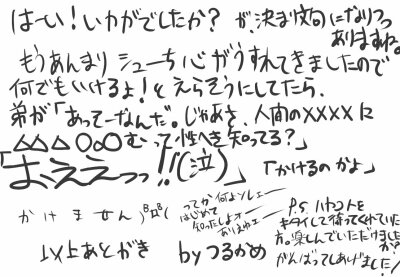 はーい!いかがでしたか? が、決まり文句になりつつ
ありますね。
もうあんまりシューち心がうすれてきましたので
何でもいけるよ!とえらそうにしてたら、
弟が「あってーなんだ。じゃあさ、人間の××××に
△△△○○○むって性へき知ってる?」
「おええっっ!!(泣)」 「かけるのかよ」
かけません
ってか何よソレェー
はじめて
知ったしよォー
かけねェー
P.S. ハヤコトを
キタイして待っててくれていた
方。楽しんでいただけました
か?
がんばってしあげました!
以上あとがき byつるかめ